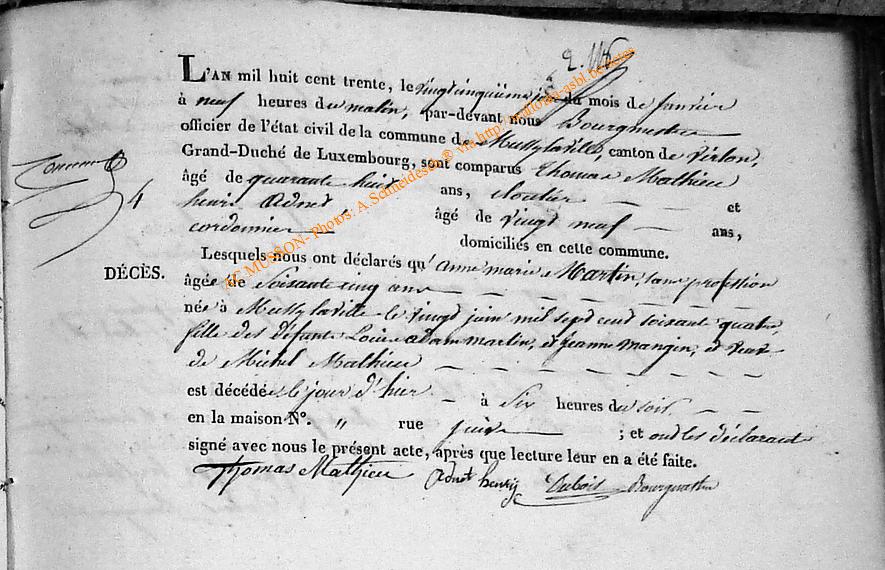 L'AN mil huit cent trente, le vingt cinquième jour du mois de janvier
à neuf heures du matin, par-devant nous Bourgmestre
officier de l'état civil de la commune de Mussy la ville, canton de Virton,
Grand-Duché de Luxembourg, sont comparus Thomas Mathieu
âgé de quarante huit ans, cloutier et
henri Adnet âgé de vingt neuf ans,
cordonnier domiciliés en cette commune.
4
DÉCÈS.
Lesquels nous ont déclarés qu'anne marie Martin, sans profession
âgée de Soixante cinq ans
née à Mussy la ville le vingt juin mil sept cent soixante quatre
fille des défunts Louis adam martin, et jeanne mangin, et veuve
de Michel Mathieu
est décédée le jour d'hier à Six heures du soir
en la maison N°. " rue ; et ont les déclarants
signé avec nous le présent acte, après que lecture leur en a été faite.
Thomas Mathieu Adnet henry Dubois Bourgmestre
AC MUSSON- Photos: A.Schneidesch® via http://www.luxroots-asbl.be/notes